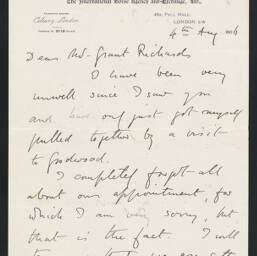 The International Horse Agency and Exchange, Ltd.,
Calvary London
46A, PALL MALL
LONDON S.W
4th Aug
Dear Mr Grant Richards
I have been very
unwell since I saw you
and have only just got myself
pulled together by a visit
to Goodwood.
I completely forgot all
about our appointment, for
which I am very sorry, but
that is the fact. I will